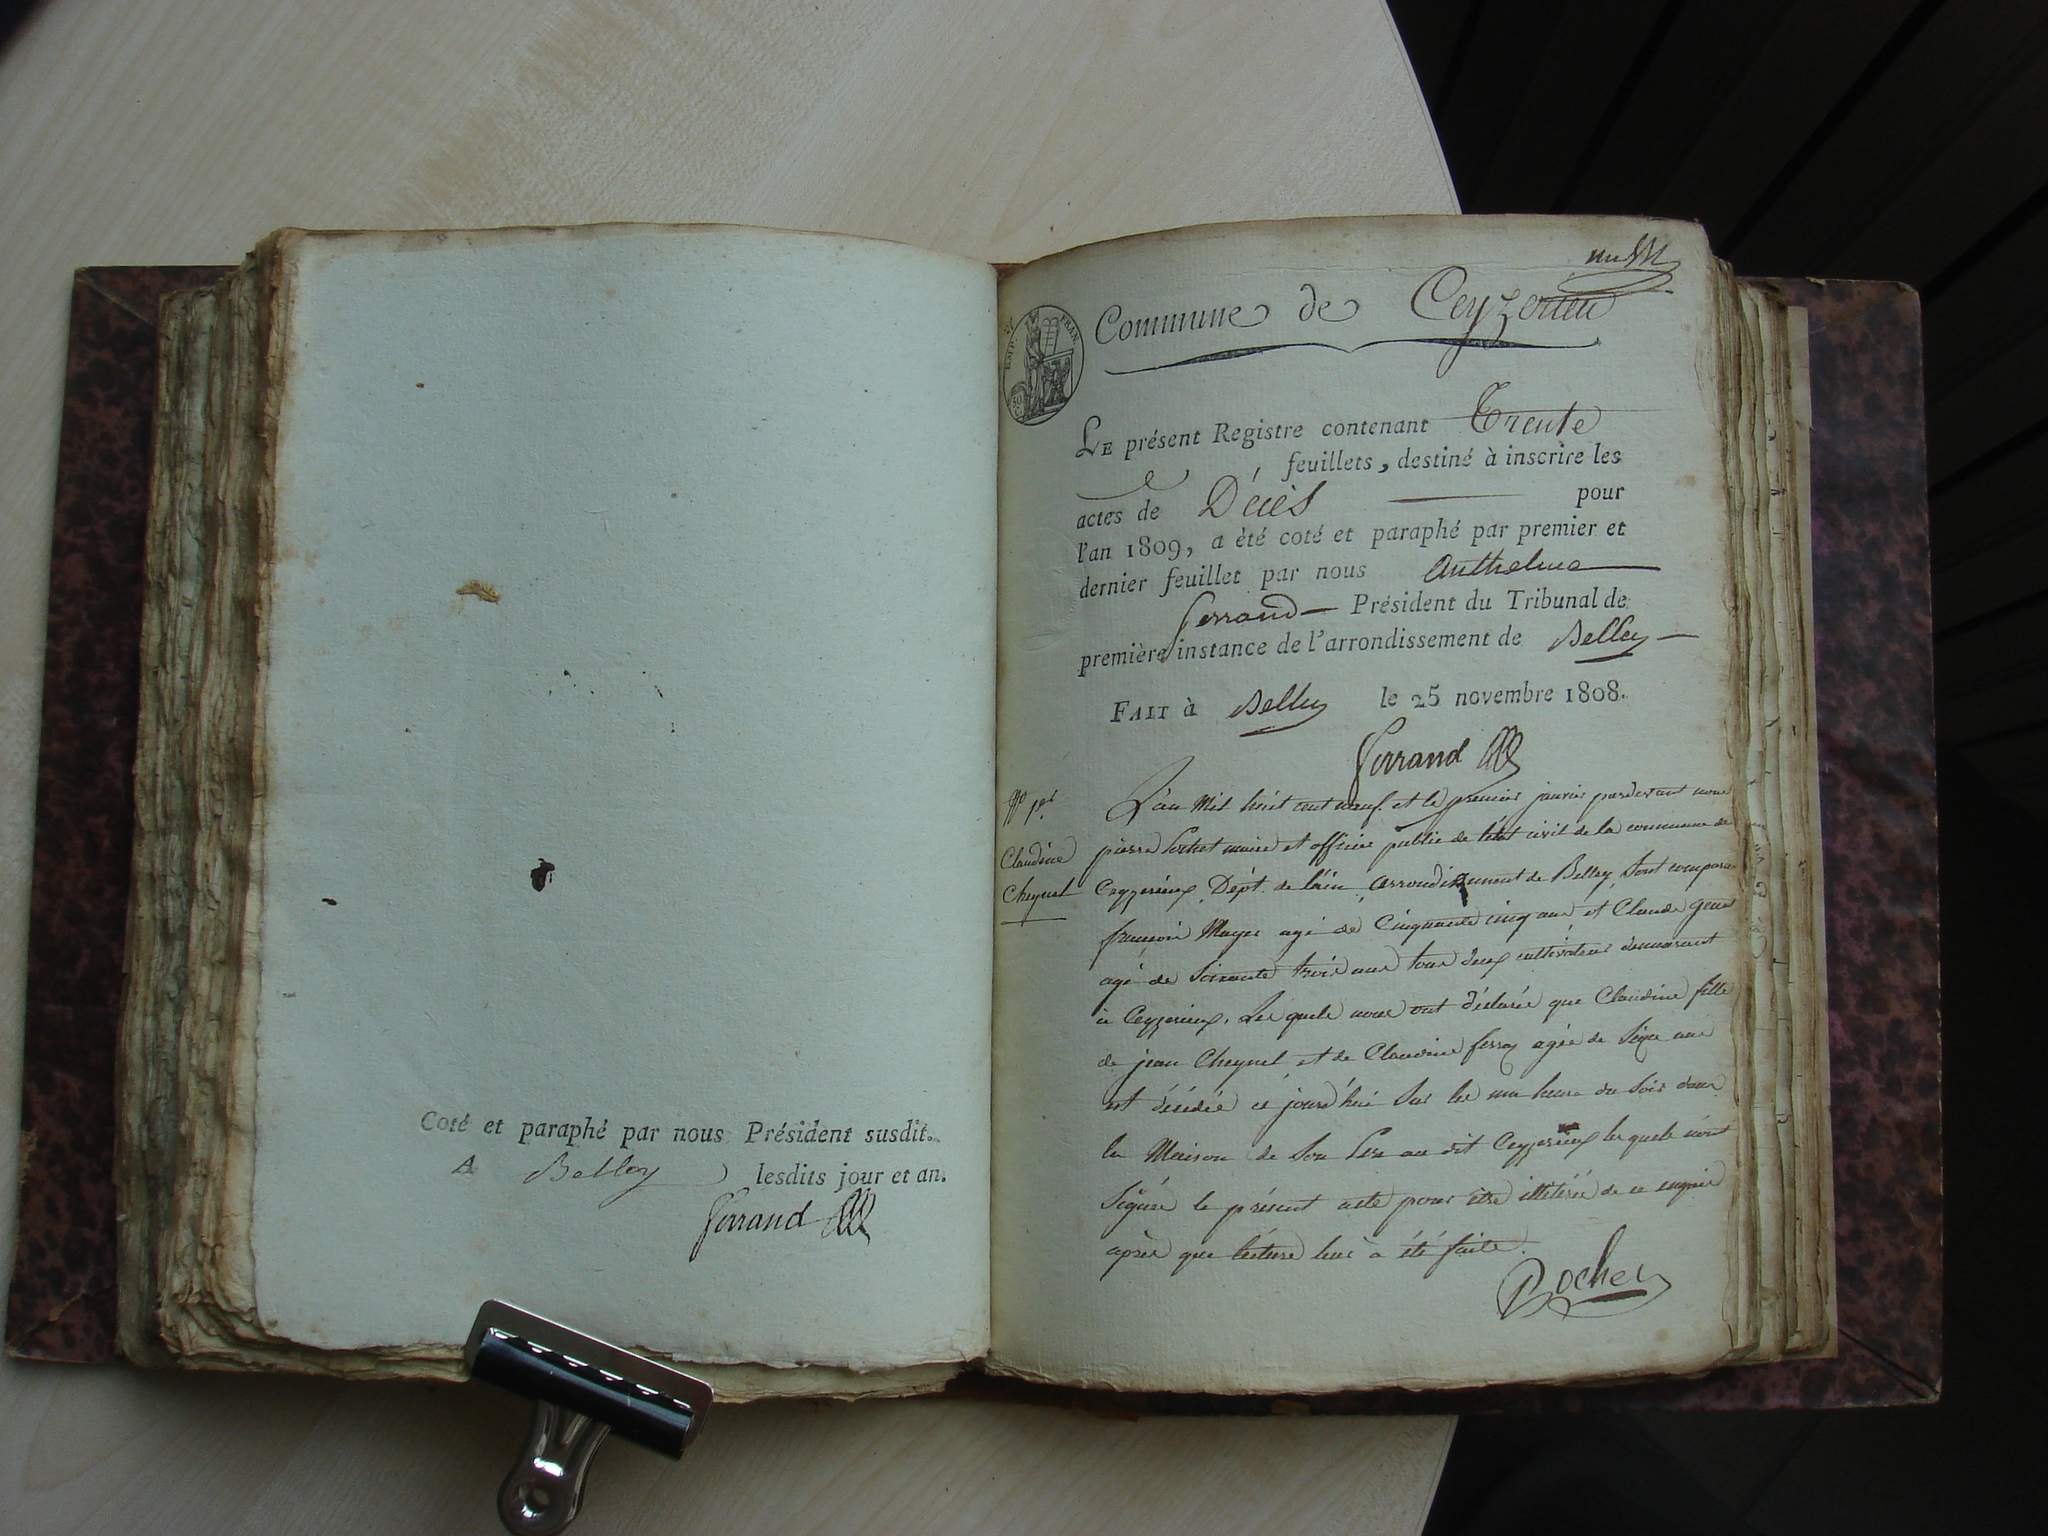 Coté et paraphé par nous Président susdit.
A Belley lesdits jour et an.
Ferrand
EMP. FRAN.
Commune de Ceyzerieu
LE présent Registre contenant Trente
feuillets, destiné à inscrire les
actes de Décès pour
l'an 1809, a été coté et paraphé par premier et
dernier feuillet par nous Anthelme
Ferrand Président du Tribunal de
première instance de l'arrondissement de Belley
FAIT à Belley le 25 novembre 1808.
Ferrand
No 1er
Claudine
Cheynel
L'an Mil huit cent neuf et le premier janvier pardevant nous
pierre Rochet maire et officier public de l'état civil de la commune de
Ceyzerieux, Dépt. de l'ain, arrondissement de Belley, sont comparus
françois Mayer agé de Cinquante cinq ans, et Claude
agé de soixante trois ans tous deux cultivateurs demeurant
à Ceyzerieux, Les quels nous ont déclaré que Claudine fille
de jean Cheynel et de Claudine ferroz agée de seize ans
est décédée ce jourd'hui sur les une heure du soir dans
la Maison de son Père au dit Ceyzerieux les quels n'ont
signés le présent acte pour être illétérés de ce enquis
après que lecture leur a été faite.
Rochet